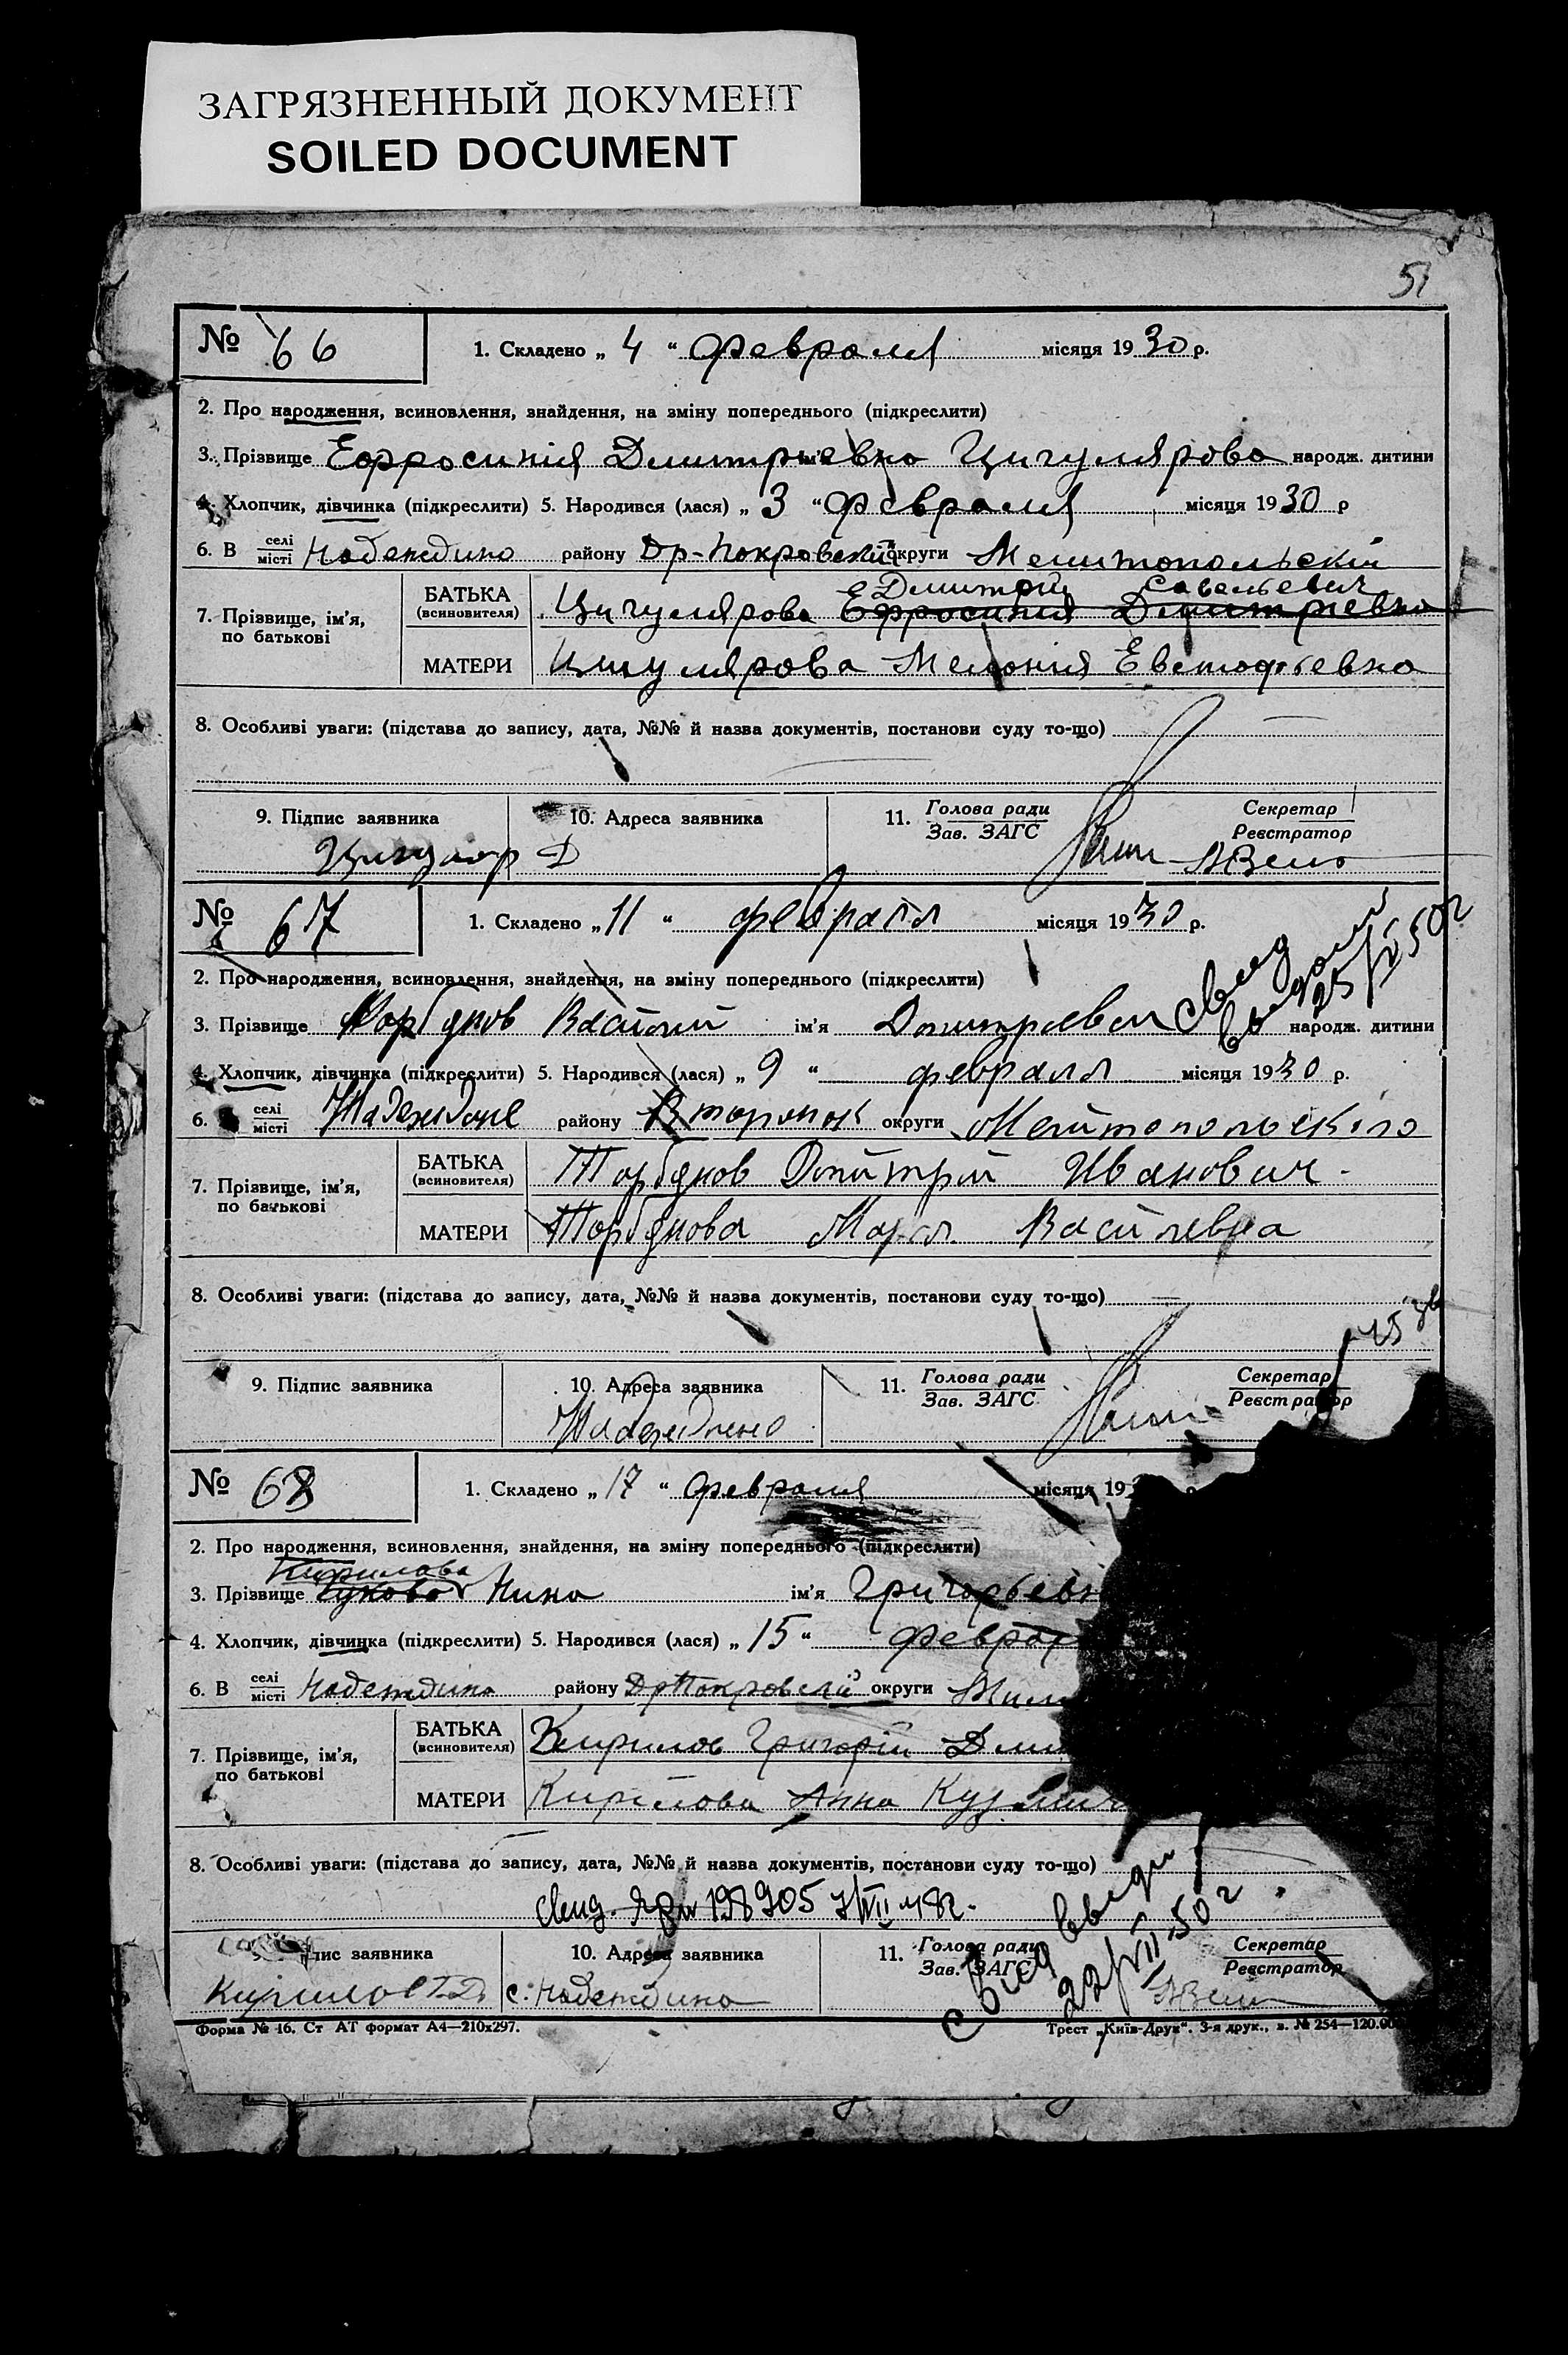 ЗАГРЯЗНЕННЫЙ ДОКУМЕНТ
SOILED DOCUMENT
51
№ 66 1. Складено „ 4 “ февраля місяця 1930 р.
2. Про народження, всиновлення, знайдення, на зміну попереднього (підкреслити)
3. Прізвище Ефросиния Дмитриевна Цигулярова народж. дитини
4. Хлопчик, дівчинка (підкреслити) 5. Народився (лася) „ 3 “ февраля місяця 1930 р
6. В селі/місті Надеждино району Др-Покровский округи Мелитопольскій
Дмитрій Савельевич
7. Прізвище, ім’я, по батькові БАТЬКА (всиновителя) Цигулярова Ефросиния Дмитриевна
МАТЕРИ Цигулярова Мелания Евстафьевна
8. Особливі уваги: (підстава до запису, дата, №№ й назва документів, постанови суду то-що)
9. Підпис заявника 10. Адреса заявника 11. Голова ради/Зав. ЗАГС Секретар/Реєстратор
Цигуляр Д
№ 67 1. Складено „ 11 “ февраля місяця 1930 р.
свид выдано 25/ 50г
2. Про народження, всиновлення, знайдення, на зміну попереднього (підкреслити)
3. Прізвище Торбунов Василий ім’я Дмитриевич народж. дитини
4. Хлопчик, дівчинка (підкреслити) 5. Народився (лася) „ 9 “ февраля місяця 1930 р.
6. селі/місті Надеждине району округи Мелитопольского
7. Прізвище, ім’я, по батькові БАТЬКА (всиновителя) Торбунов Дмитрий Иванович
МАТЕРИ Торбунова Мария Василевна
8. Особливі уваги: (підстава до запису, дата, №№ й назва документів, постанови суду то-що)
9. Підпис заявника 10. Адреса заявника 11. Голова ради/Зав. ЗАГС Секретар/Реєстратор
Надеждино
№ 68 1. Складено „ 17 “ февраля місяця 19
2. Про народження, всиновлення, знайдення, на зміну попереднього (підкреслити)
Кирилова
3. Прізвище Нина ім’я Григорьевн
4. Хлопчик, дівчинка (підкреслити) 5. Народився (лася) „ 15 “ феврал
6. В селі/місті Надеждино району Др Покровский округи
7. Прізвище, ім’я, по батькові БАТЬКА (всиновителя) Кирилов Григорій Дми
МАТЕРИ Кирилова Анна Кузьмич
8. Особливі уваги: (підстава до запису, дата, №№ й назва документів, постанови суду то-що)
198905 7/VII 48г.
свид выдан 22/VII 50 г
пис заявника 10. Адреса заявника 11. Голова ради/Зав. ЗАГС Секретар/Реєстратор
Кирилов Г.Д. с. Надеждино
Форма № 16. Ст АТ формат А4—210х297. Трест „Київ-Друк“. 3-я друк., з. № 254—120.00